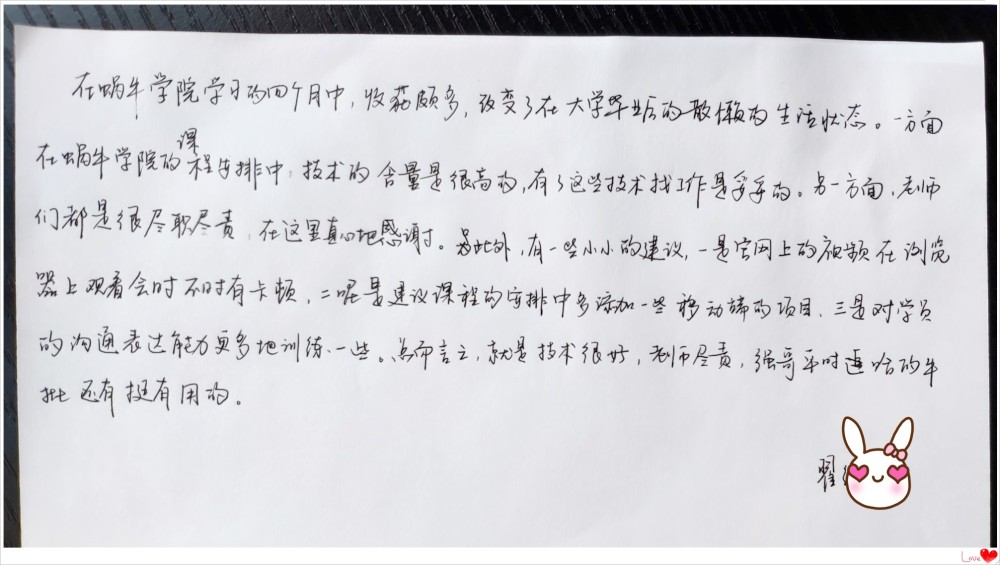 在蜗牛学院学习的四个月中，收获颇多，改变了在大学毕业后的散懒的生活状态。一方面
在蜗牛学院的课程安排中，技术的含量是很高的，有了这些技术找工作是妥妥的。另一方面，老师
们都是很尽职尽责，在这里真心地感谢。另此外，有一些小小的建议，一是官网上的视频在浏览
器上观看会时不时有卡顿，二呢是建议课程的安排中多添加一些移动端的项目，三是对学员
的沟通表达能力更多地训练一些。总而言之，就是技术很好，老师尽责，强哥平时逼啥的牛
批还有挺有用的。
翟
Love